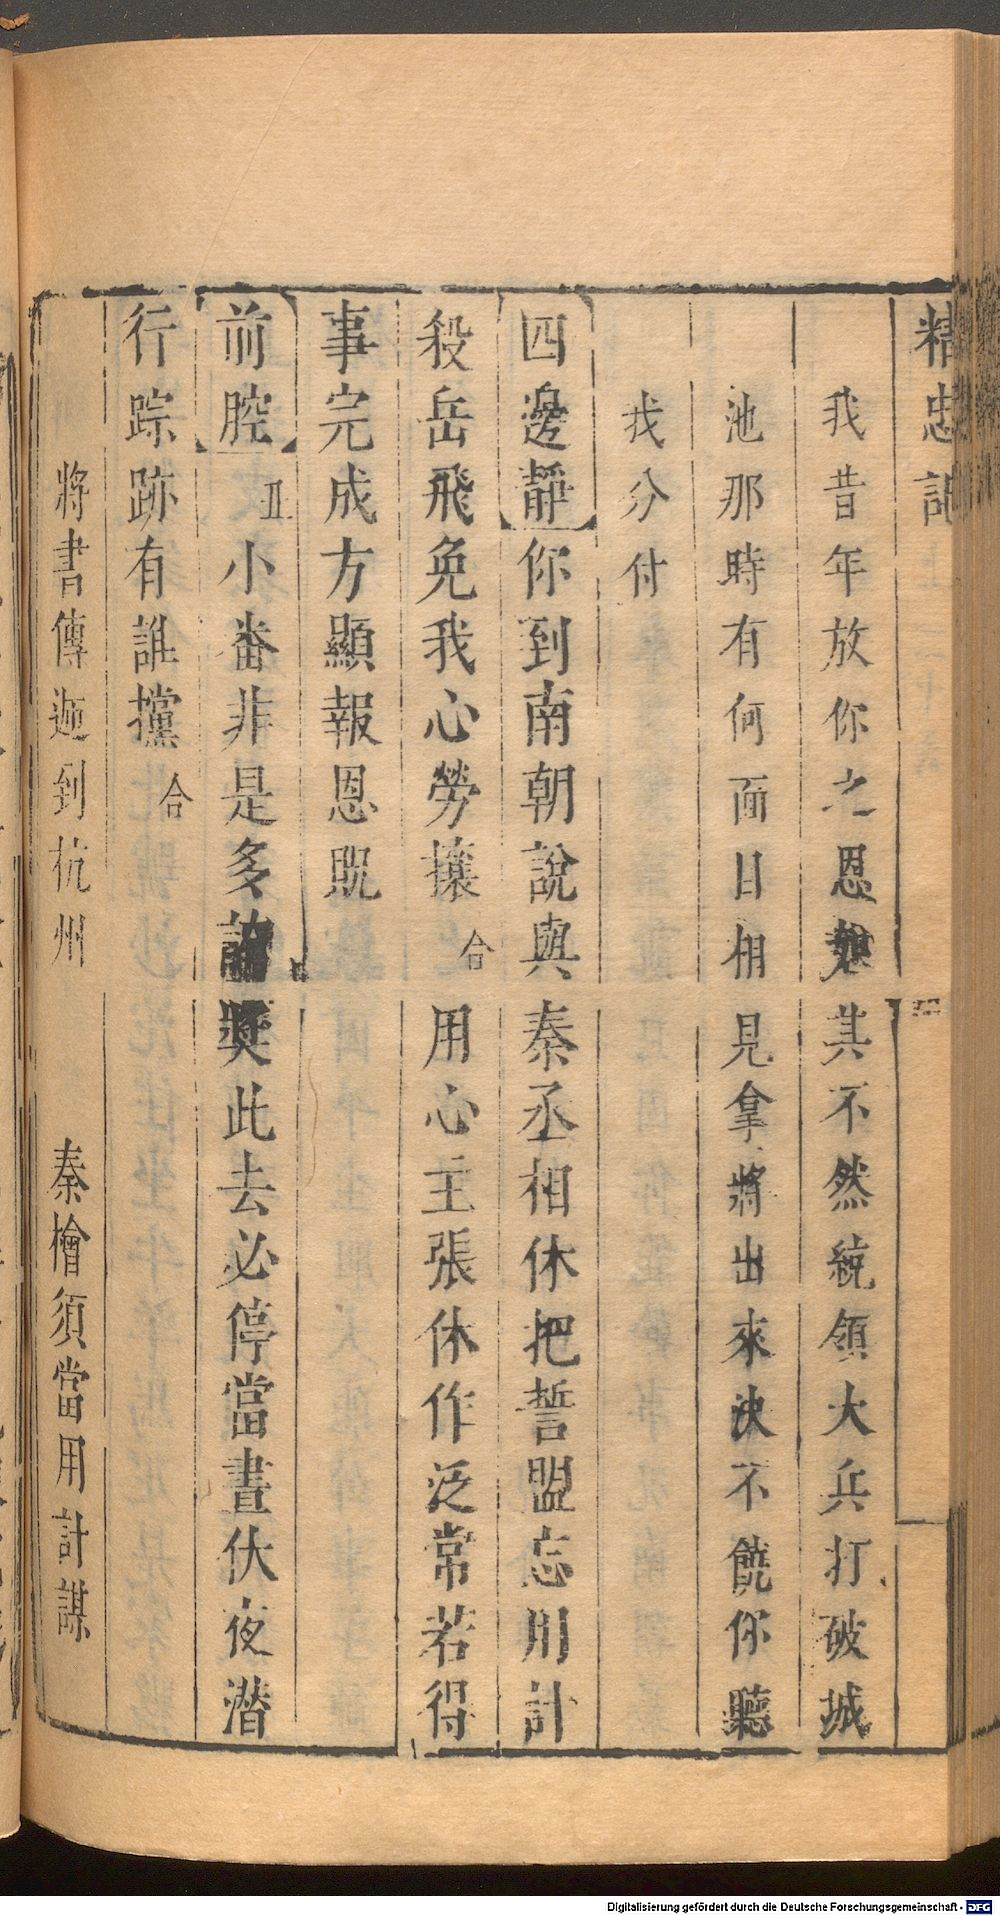 精忠記
我昔年放你之恩其不然統領大兵打破城
池那時有何面目相見拿將出來決不饒你聽
我分付
四邊靜你到南朝說與秦丞相休把誓盟忘用計
殺岳飛免我心勞攘合用心主張休作泛常若得
事完成方顯報恩貺
前腔 小畨非是多獎此去必停當晝伏夜潛
行踪跡有誰攩合
將書傳遞到杭州 秦檜須當用計謀
Digitalisierung gefördert durch die Deutsche Forschungsgemeinschaft - DFG